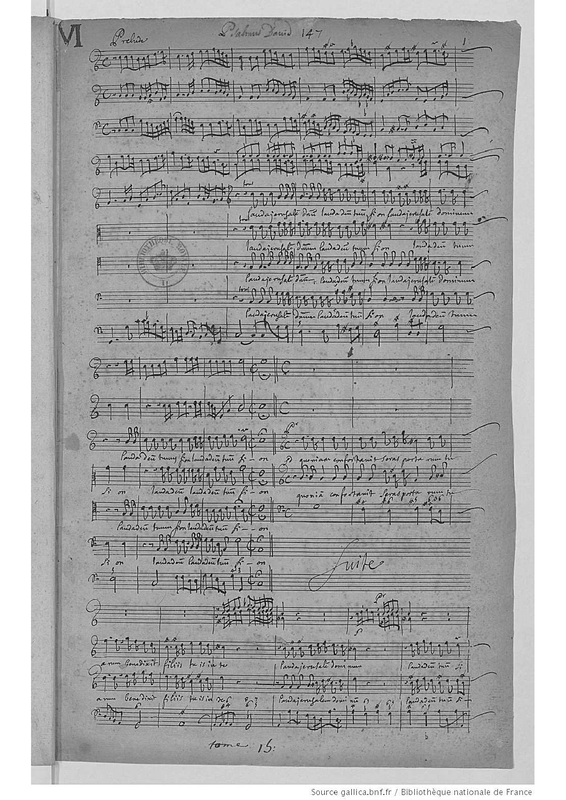 VI
Prelude Psalmus David 147
laudajerusalē Dnū laudadeū tuum sion laudajerusalē dominum
laudajerusalē Dnum laudadeū tuum sion laudadeū tuum
laudajerusalē Dnū laudadeū tuum sion laudajerusalē dominum
laudajerusalē Dnum laudadeū tuum sion laudadeū tuum
laudadeū tuum sion laudadeū tuū si - on
quoniam confortavit seras porta rum tu
si on laudadeū laudadeū tuū si - on
quoniā confortavit seras porta rum tu
laudadeū tuum sion laudadeū tuū si - on
si on laudadeū laudadeū tuū si - on
Suite
arum benedixit filiis tuis in te laudajerusalē dominum laudadeū tuū si
arum benedixit filiis tuis in te laudajerusalem dominum laudadeū tuū si
tome 15.
Source gallica.bnf.fr / Bibliothèque nationale de France